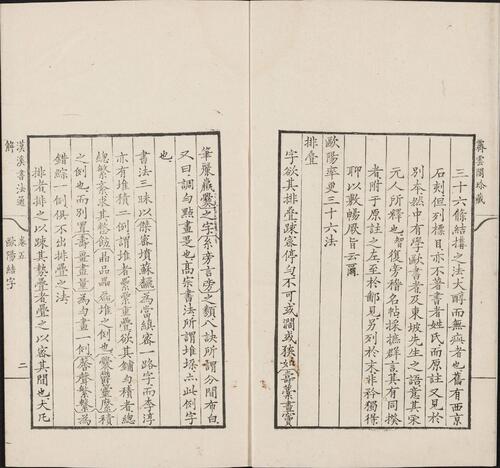 霽雲閣珍藏
三十六條結搆之法大醇而無疵者也舊有西京
石刻但列標目亦不著書者姓氏而原註又見於
別本然中有學歐書者及東坡先生之語意其宋
元人所釋也智復旁稽名帖採摭群言其有同揆
者附于原註之左至於鄙見另列於末非矜獨得
聊以敷暢厥旨云爾
歐陽率更三十六法
排疊
字欲其排疊疎密停勻不可或濶或狹如壽藁畫寶
筆麗羸爨之字系旁言旁之類八訣所謂分間布白
又曰調勻點畫是也高宗書法所謂堆垛亦此例字
也
書法三昧以傑審墳蘇
為當縝密一路字而李淳
亦有堆積二例謂堆者纍纍重疊欲其鋪勻積者總
總繁紊求其整飭晶品畾
堆之例也爨鬱靈縻積
之例也而別置壽疊畫量為勻畫一例
繁
為
錯綜一例俱不出排疊之法
排者排之以疎其勢疊者疊之以密其間也大凡
漢溪書法通解
卷五
歐陽結字
二